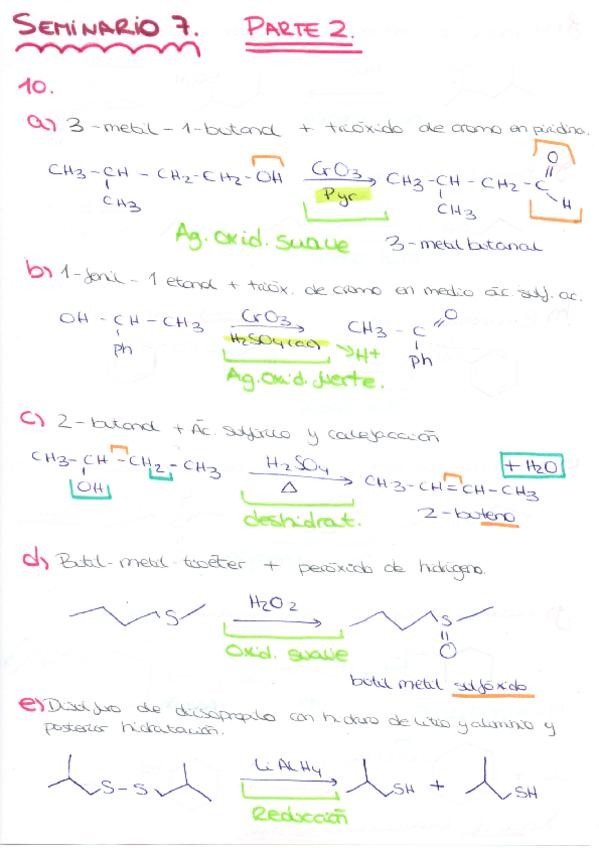 SEMINARIO 7. PARTE 2.
10.
a) 3-metil-1-butanol + trióxido de cromo en piridina.
CH3-CH-CH2-CH2-OH CrO3 Pyr CH3-CH-CH2-C O H
CH3 CH3
Ag. oxid. suave 3-metilbutanal
b) 1-fenil-1 etanol + trióx. de cromo en medio ác. sulf. ac.
OH-CH-CH3 CrO3 CH3-C O
Ph H2SO4(ac) H+ Ph
Ag. Oxid. fuerte.
c) 2-butanol + Ác. sulfúrico y calefacción
CH3-CH-CH2-CH3 H2SO4 CH3-CH=CH-CH3 + H2O
OH Δ 2-buteno
deshidrat.
d) Butil-metil-tioéter + peróxido de hidrógeno.
S H2O2 S
O
Oxid. suave
butil metil sulfóxido
e) Disulfuro de diisopropilo con hidruro de litio y aluminio y
posterior hidratación.
S-S LiAlH4 SH + SH
Reducción